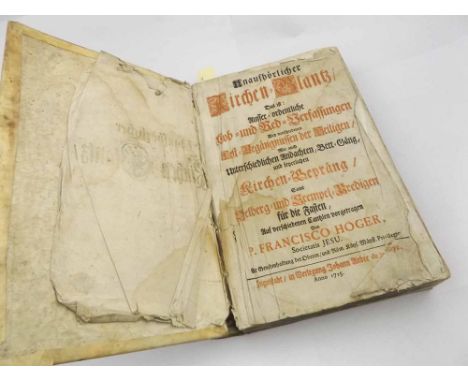 Unaufhörlicher
Kirchen-Glantz,
Das ist:
Ausser-ordentliche
Lob- und Red-Verfassungen
Von
Fest-Begängnussen der Heiligen/
Wie auch
Unterschiedlichen Andachten, Bett-Gäng,
und feyerlichen
Kirchen-Gepräng/
Samt
Oelberg- und Exempel-Predigen
für die Fasten,
Auf verschiedenen Cantzlen vorgetragen
Von
P. FRANCISCO HÖGER,
Societatis JESU.
der Obern/ und
Ingolstatt/ in Verlegung Johann
Anno 1715.